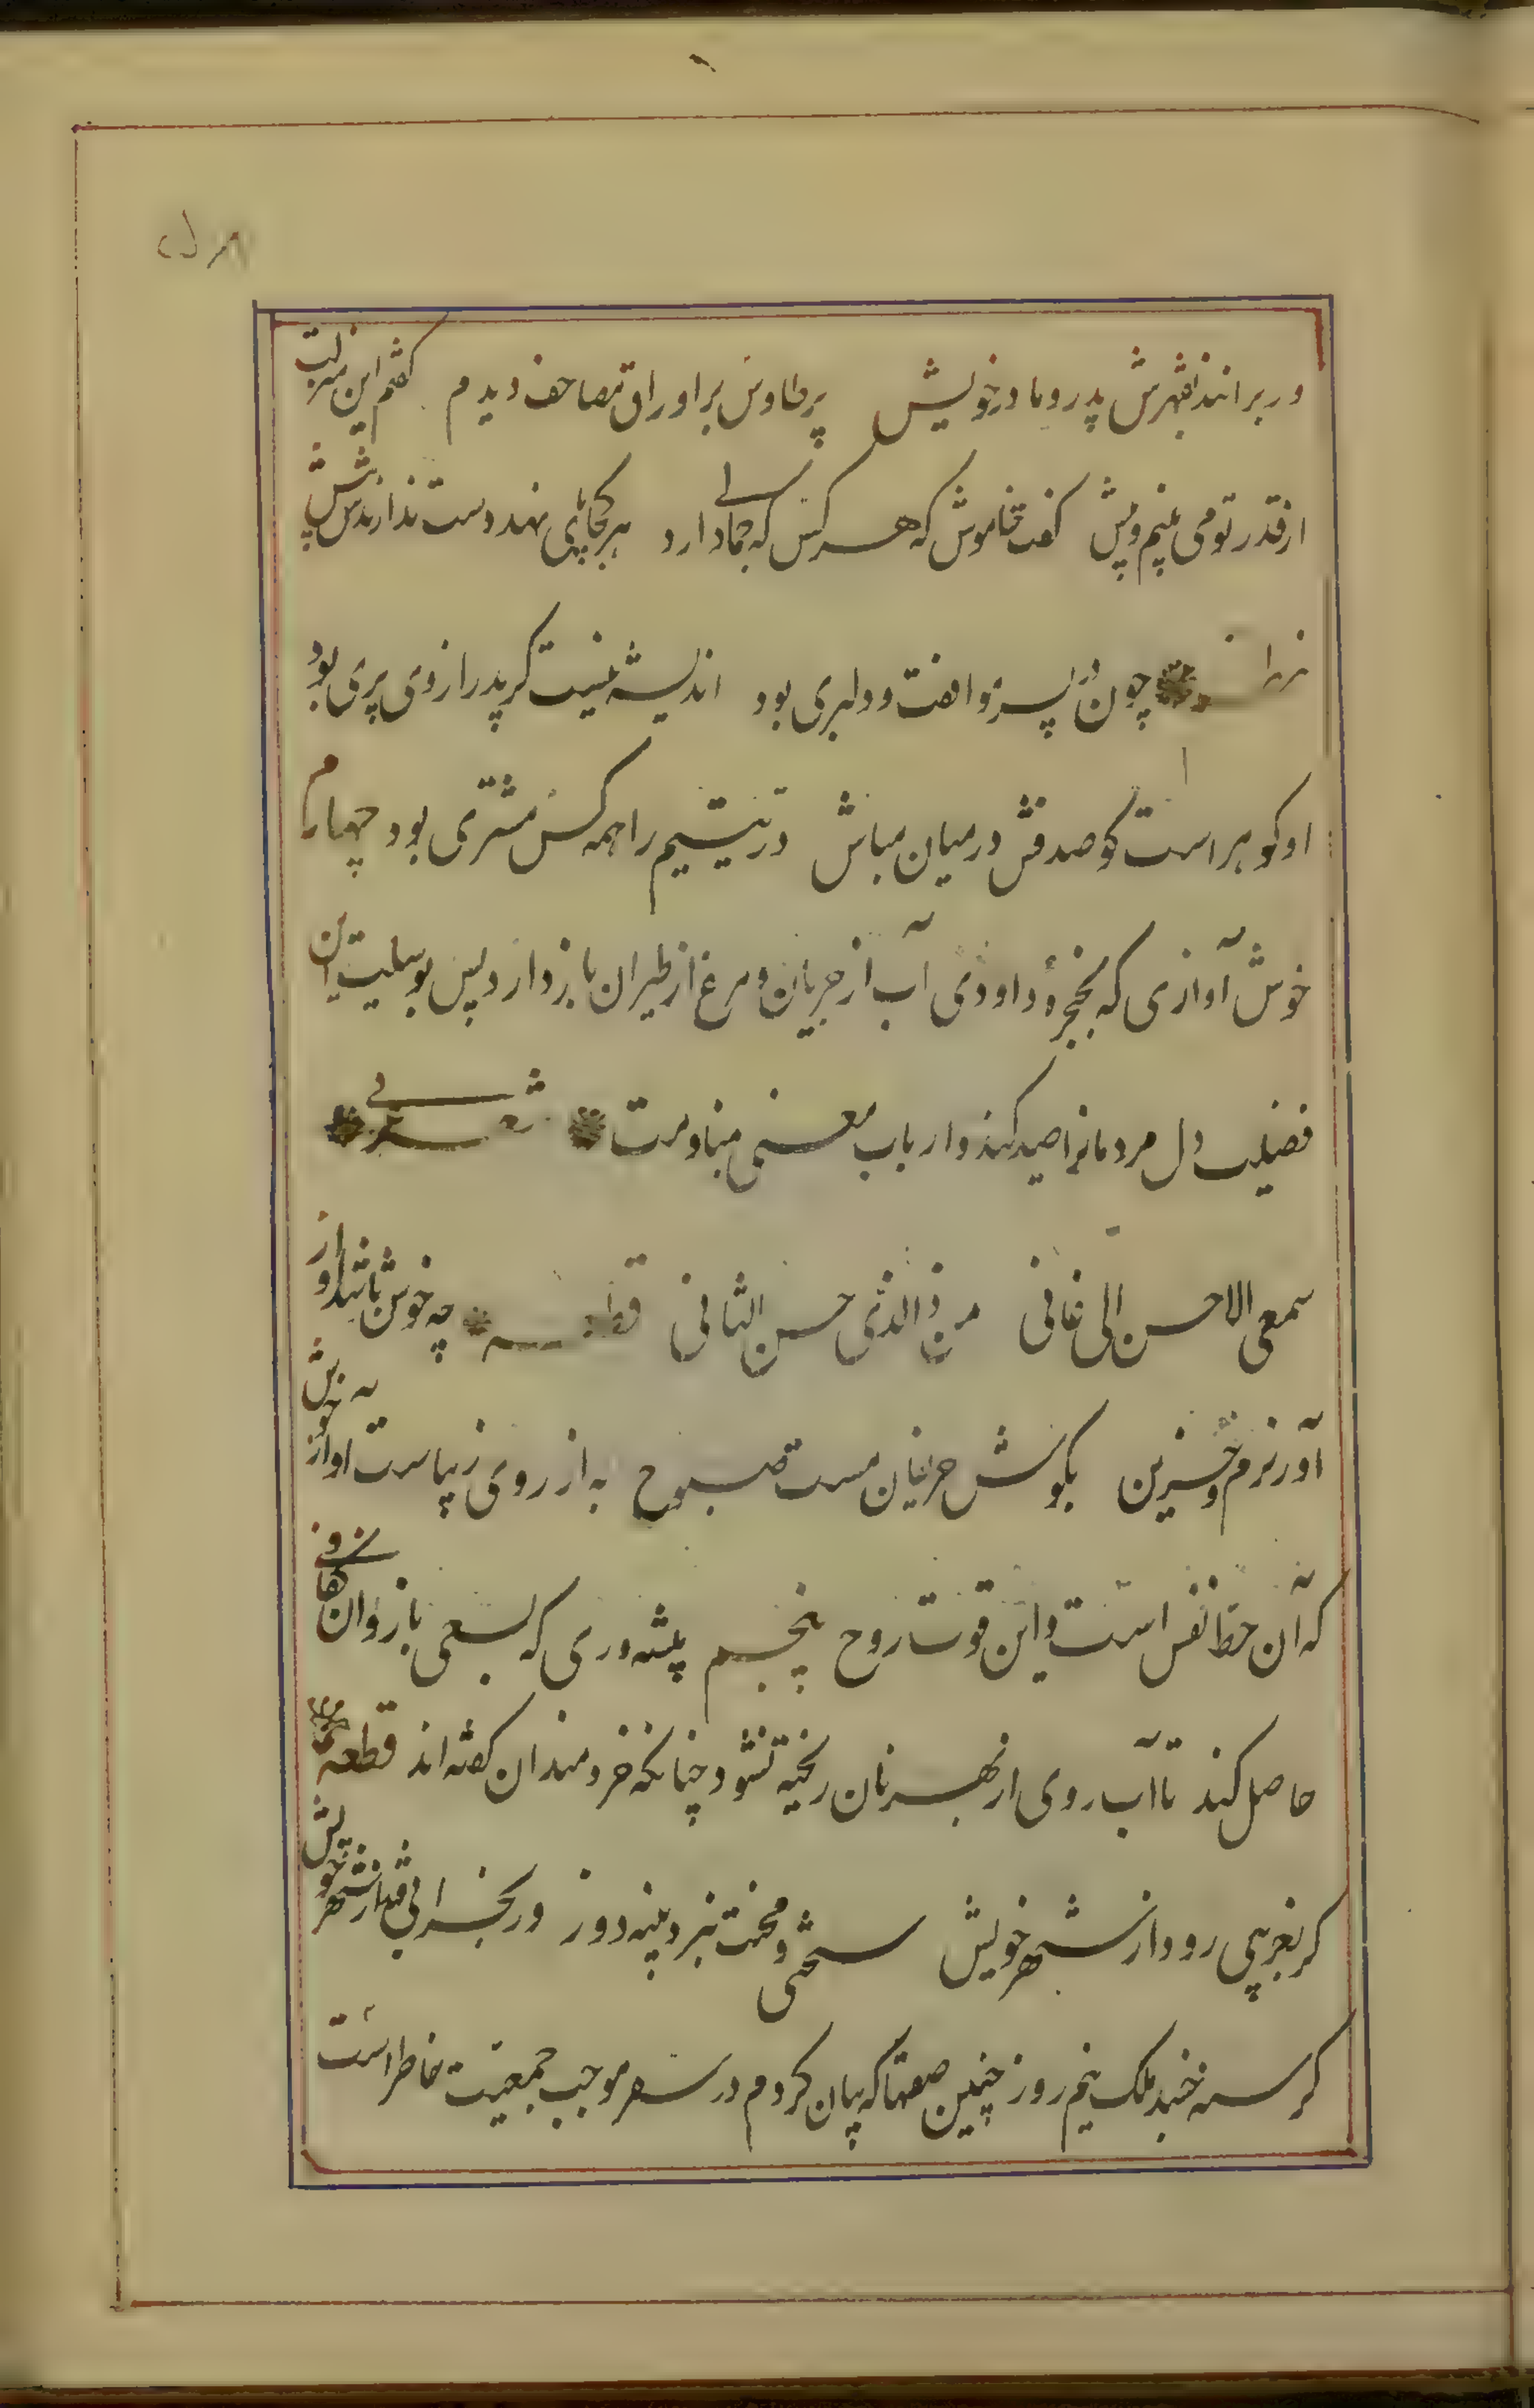 ور برانند بقهرش پدر و مادر خویش پر طاوس بر اوراق مصاحف دیدم گفتم این منزلت
از قدر تو می بینم و بیش گفت خاموش که هر کس که جمالی دارد هر کجا پای نهد دست ندارندش پیش
چون در پسر موافقت و دلبری بود اندیشه نیست گر پدر از وی بری بود
او گوهر است گو صدفش در میان مباش در یتیم را همه کس مشتری بود چهارم
خوش آوازی که بحنجرهٔ داودی آب از جریان و مرغ از طیران باز دارد پس بوسیلت این
فضیلت دل مردمانرا صید کند و ارباب معنی بمنادمت شعر
سمعی الی حسن الاغانی من ذالذی حسن الثانی قطعه چه خوش باشد آواز
آواز نرم و حزین بگوش حریفان مست صبوح به از روی زیباست آواز خوش
که آن حظ نفس است و این قوت روح پنجم پیشه وری که بسعی بازوان کفافی
حاصل کند تا آب روی از بهر نان ریخته نشود چنانکه خردمندان گفته اند قطعه
گر بغریبی رود از شهر خویش سختی و محنت نبرد پنبه دوز ور بخرابی فتد از شهر خویش
گرسنه خسبد ملک نیم روز چنین صفتها که بیان کردم در سفر موجب جمعیت خاطر است